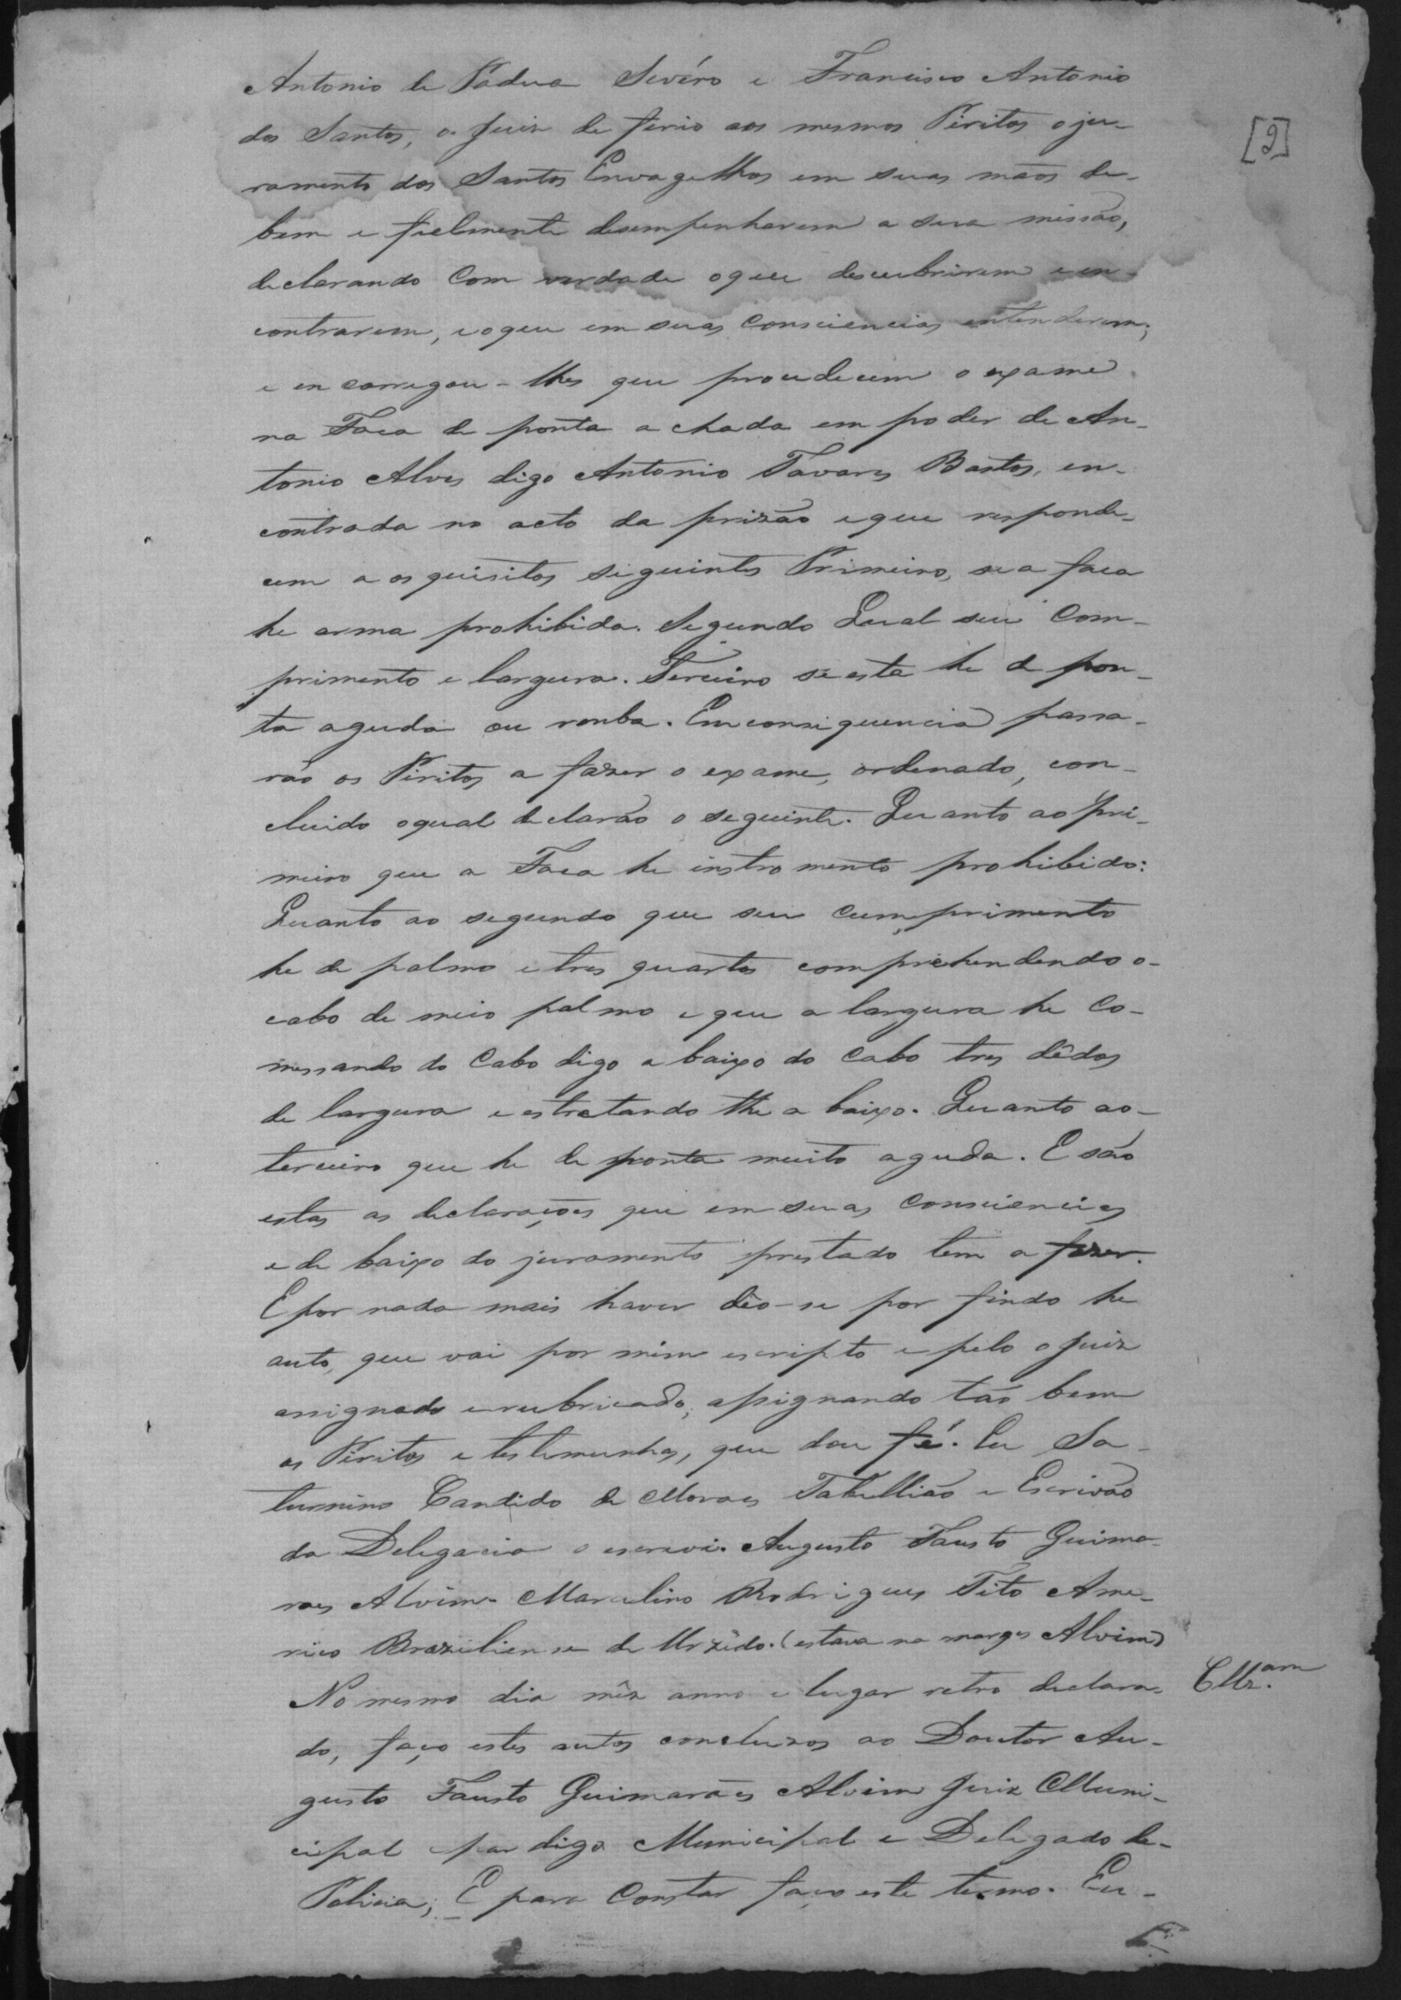 Antonio de Pádua Sevéro e Francisco Antonio
dos Santos, o Juiz de ferio aos mesmos Peritos o ju-
[2]
ramento dos Santos Envagelhos em suas mãos de-
bem e fielmente desempenharem a sua missão,
declarando com verdade oque descubrirem e en-
contrarem, e oque em suas consciencias entenderem;
e en carregou-lhes que procedecem o exame
na Faca de ponta a chada em poder de An-
tonio Alves digo Antonio Tavares Bastos, en-
contrada no acto da prizão e que responde-
cem a os quisitos siguintes Primeiro, se a faca
he arma prohibida. Segundo Qual seu Com-
primento e largura. Terceiro se esta he de pon-
ta aguda ou romba. Em consiquencia passa-
rão os Peritos a fazer o exame, ordenado, con-
cluido oqual declarão o seguinte. Quanto ao pri-
meiro que a Faca he instromento prohibido:
Quanto ao segundo que seu cumprimento
he de palmo e tres quartos comprehendendo o-
cabo de meio palmo e que a largura he co-
messando do Cabo digo a baixo do Cabo tres dêdos
de largura e estretando lhe a baixo. Quanto ao-
terceiro que he de ponta muito aguda. E são
estas as declarações que em suas consciencias
e de baixo do juramento prestado tem a fazer.
E por nada mais haver dêo-se por findo he
auto, que vai por mim escripto e pelo o Juiz
assignado e rubricado, assignando tão bem
os Peritos e testemunhas, que dou fé. Eu Sa-
turnino Candido de Moraes Tabellião e Escrivão
da Delegacia o escrevi. Augusto Fausto Guima-
raes Alvim. Marcelino Rodrigues Tito Ame-
rico Braziliense de Urzêdo. (estava na marge Alvim)
No mesmo dia mêz anno e lugar retro declara-
do, faço estes autos concluzos ao Doutor Au-
gusto Fausto Guimarães Alvim Juiz Muni-
cipal par digo Municipal e Delegado de-
Policia; E para Constar faço este termo. Eu-